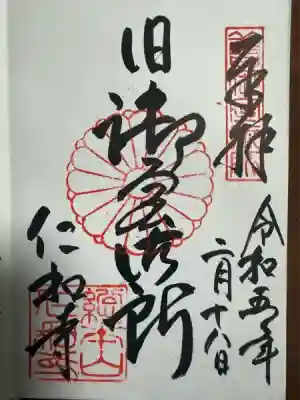 奉拝
令和五年
二月十八日
旧御室御所
仁和寺